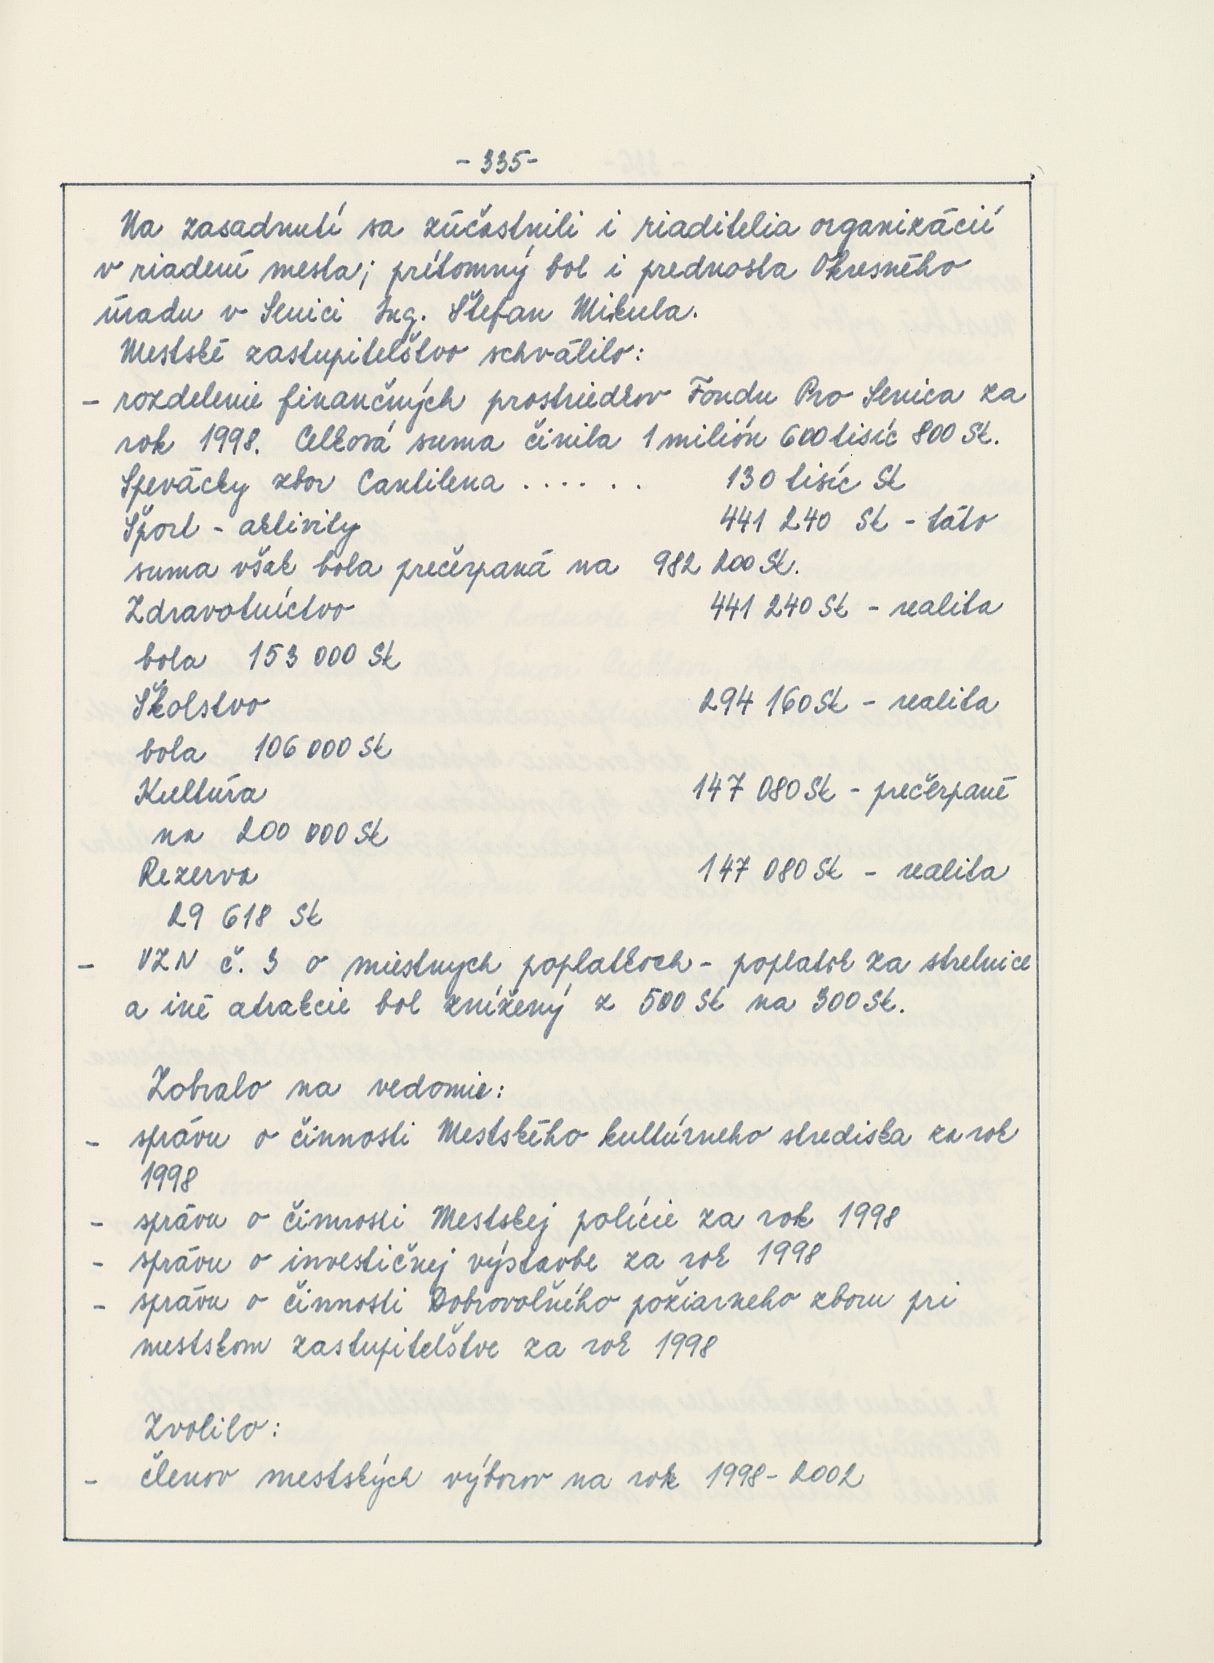 - 335 -
Na zasadnutí sa zúčastnili i riaditelia organizácií
v riadení mesta; prítomný bol i prednosta Okresného
úradu v Senici Ing. Štefan Mikula.
Mestské zastupiteľstvo schválilo:
- rozdelenie finančných prostriedkov Fondu Pro Senica za
rok 1998. Celková suma činila 1 milión 600 tisíc 800 Sk.
Spevácky zbor Cantilena ...... 130 tisíc Sk
Šport - aktivity 441 240 Sk - táto
suma však bola prečerpaná na 982 200 Sk.
Zdravotníctvo 441 240 Sk - realita
bola 153 000 Sk
Školstvo 294 160 Sk - realita
bola 106 000 Sk
Kultúra 147 080 Sk - prečerpané
na 200 000 Sk
Rezerva 147 080 Sk - realita
29 618 Sk
- VZN č. 3 o miestnych poplatkoch - poplatok za strelnice
a iné atrakcie bol znížený z 500 Sk na 300 Sk.
Zobralo na vedomie:
- správu o činnosti Mestského kultúrneho strediska za rok
1998
- správu o činnosti Mestskej polície za rok 1998
- správu o investičnej výstavbe za rok 1998
- správu o činnosti Dobrovoľného požiarneho zboru pri
mestskom zastupiteľstve za rok 1998
Zvolilo:
- členov mestských výborov na rok 1998 - 2002